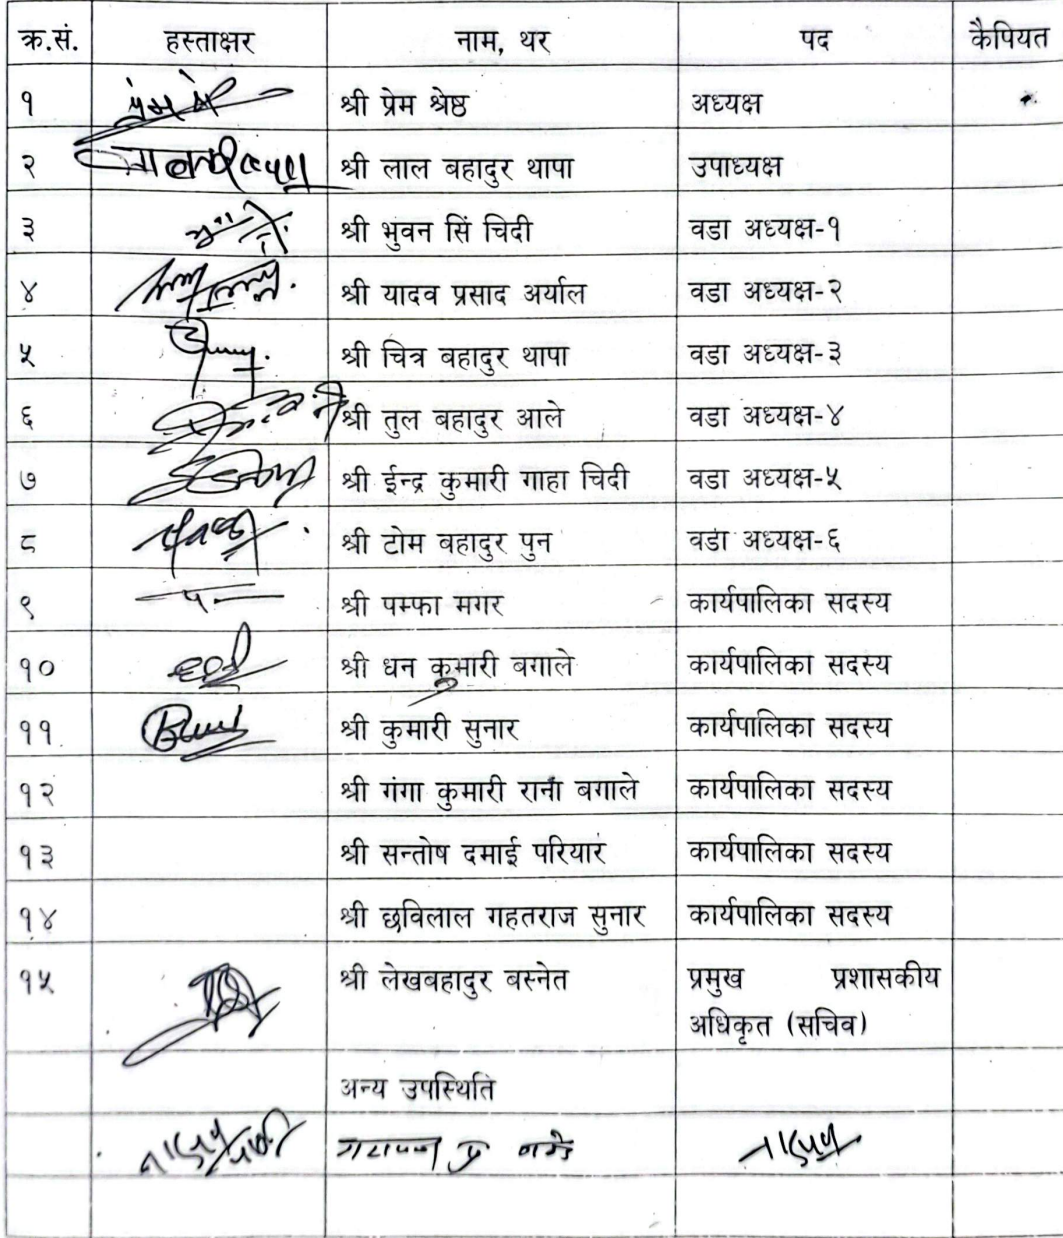 क्र.सं. हस्ताक्षर नाम, थर पद कैपियत
१ श्री प्रेम श्रेष्ठ अध्यक्ष
२ श्री लाल बहादुर थापा उपाध्यक्ष
३ श्री भुवन सिं चिदी वडा अध्यक्ष-१
४ श्री यादव प्रसाद अर्याल वडा अध्यक्ष-२
५ श्री चित्र बहादुर थापा वडा अध्यक्ष-३
६ श्री तुल बहादुर आले वडा अध्यक्ष-४
७ श्री ईन्द्र कुमारी गाहा चिदी वडा अध्यक्ष-५
८ श्री टोम बहादुर पुन वडा अध्यक्ष-६
९ श्री पम्फा मगर कार्यपालिका सदस्य
१० श्री धन कुमारी बगाले कार्यपालिका सदस्य
११ श्री कुमारी सुनार कार्यपालिका सदस्य
१२ श्री गंगा कुमारी राना बगाले कार्यपालिका सदस्य
१३ श्री सन्तोष दमाई परियार कार्यपालिका सदस्य
१४ श्री छविलाल गहतराज सुनार कार्यपालिका सदस्य
१५ श्री लेखबहादुर बस्नेत प्रमुख प्रशासकीय
अधिकृत (सचिव)
अन्य उपस्थिति